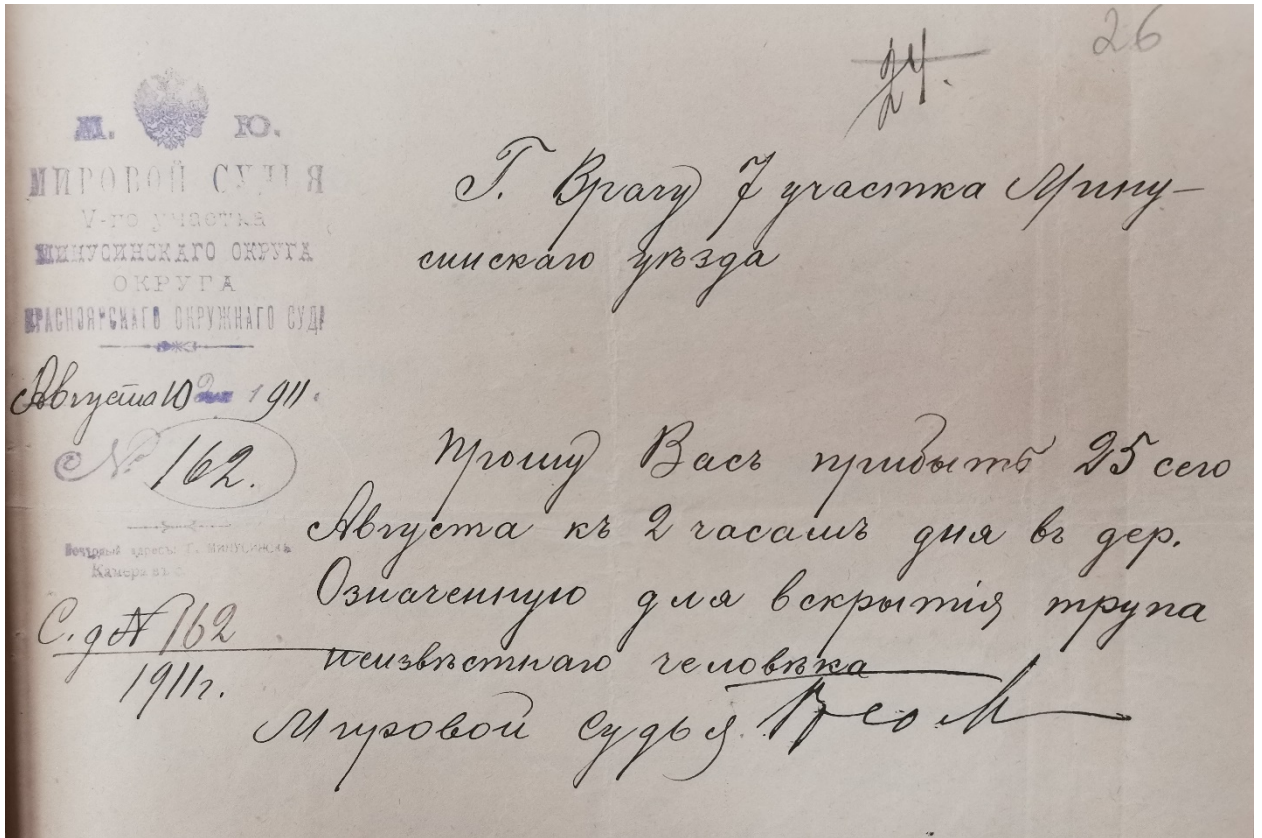 26
24.
М. Ю.
МИРОВОЙ СУДЬЯ
V-го участка
МИНУСИНСКАГО ОКРУГА
ОКРУГА
КРАСНОЯРСКАГО ОКРУЖНАГО СУДА
Августа 10 дня 1911.
№ 162.
Почтовый адресъ: Г. МИНУСИНСКЪ
Камера въ
С. д № 162
1911 г.
Г. Врачу 7 участка Мину-
синскаго уѣзда
Прошу Васъ прибыть 25 сего
Августа къ 2 часамъ дня въ дер.
Означенную для вскрытія трупа
неизвѣстнаго человѣка
Мировой Судья